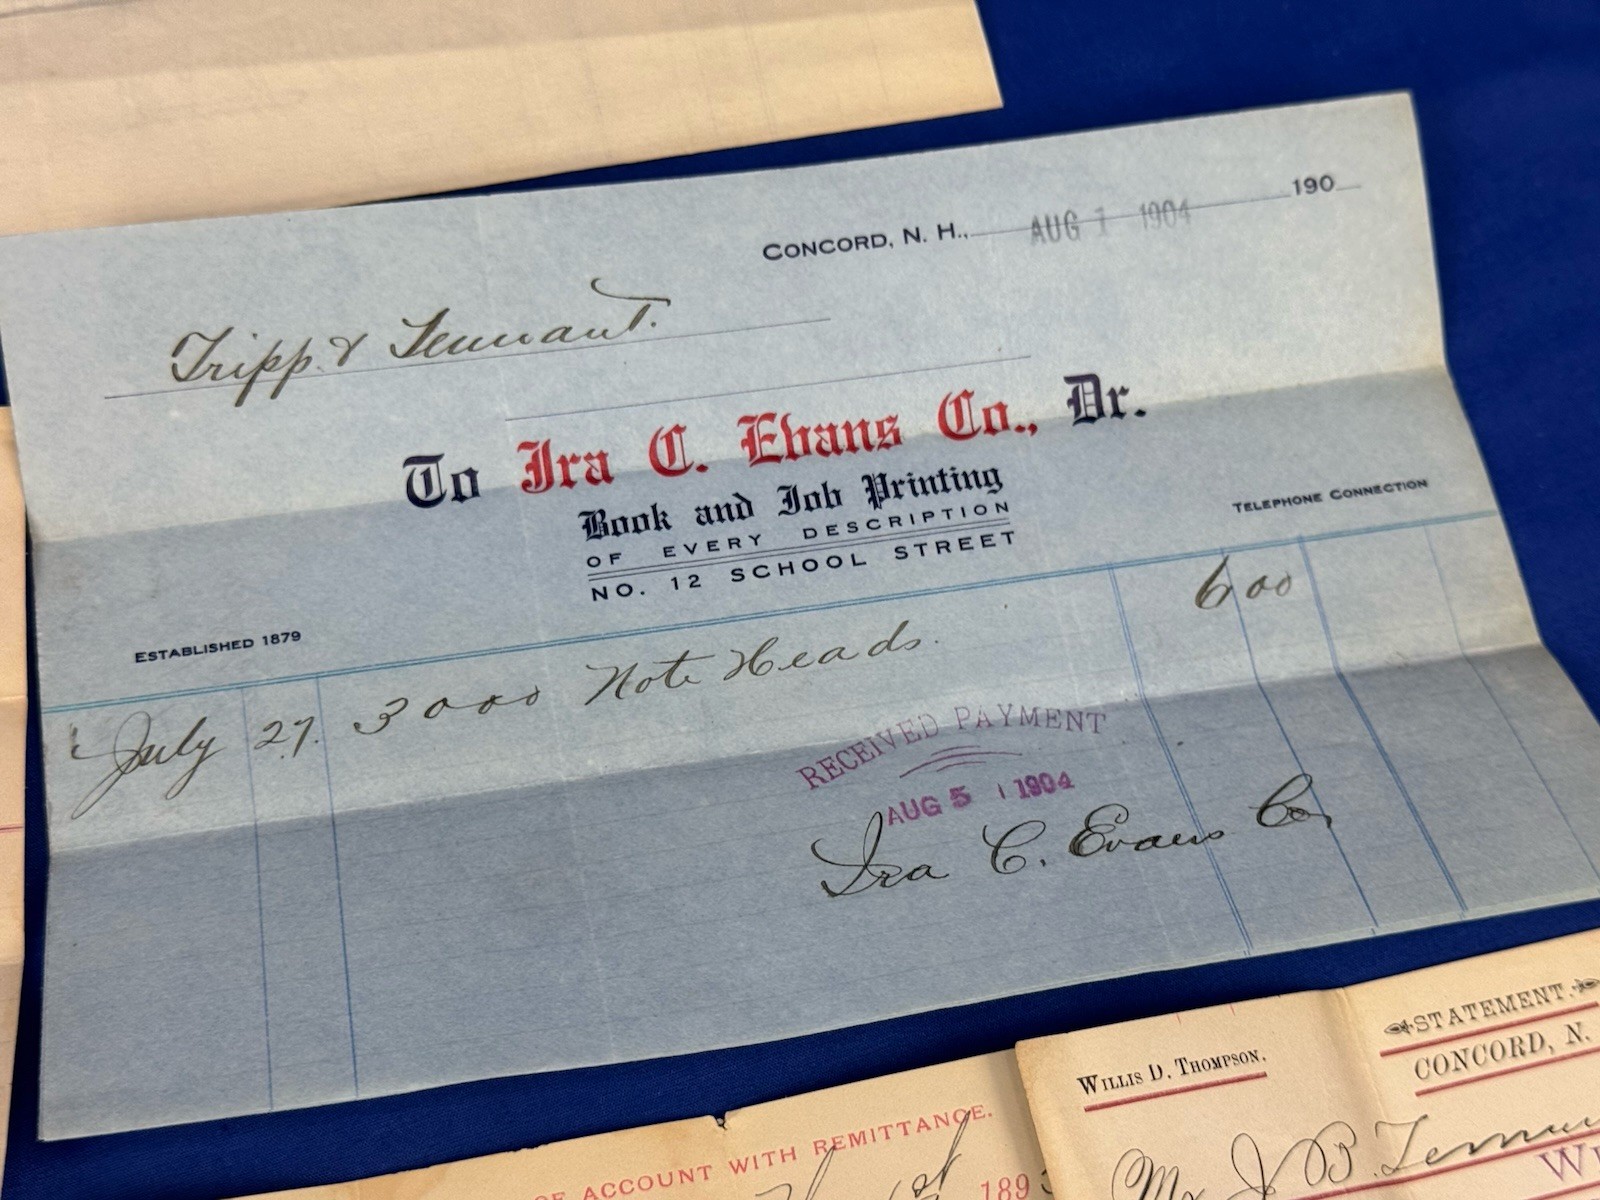 CONCORD, N. H., AUG 1 1904 190
Tripp & Tennant.
To Ira C. Evans Co., Dr.
Book and Job Printing
OF EVERY DESCRIPTION
NO. 12 SCHOOL STREET
TELEPHONE CONNECTION
ESTABLISHED 1879
July 27. 3000 Note Heads. 6 00
RECEIVED PAYMENT
AUG 5 1904
Ira C. Evans Co.
STATEMENT.
WILLIS D. THOMPSON.
CONCORD, N.
Mr J B. Tennan
OF ACCOUNT WITH REMITTANCE.
189